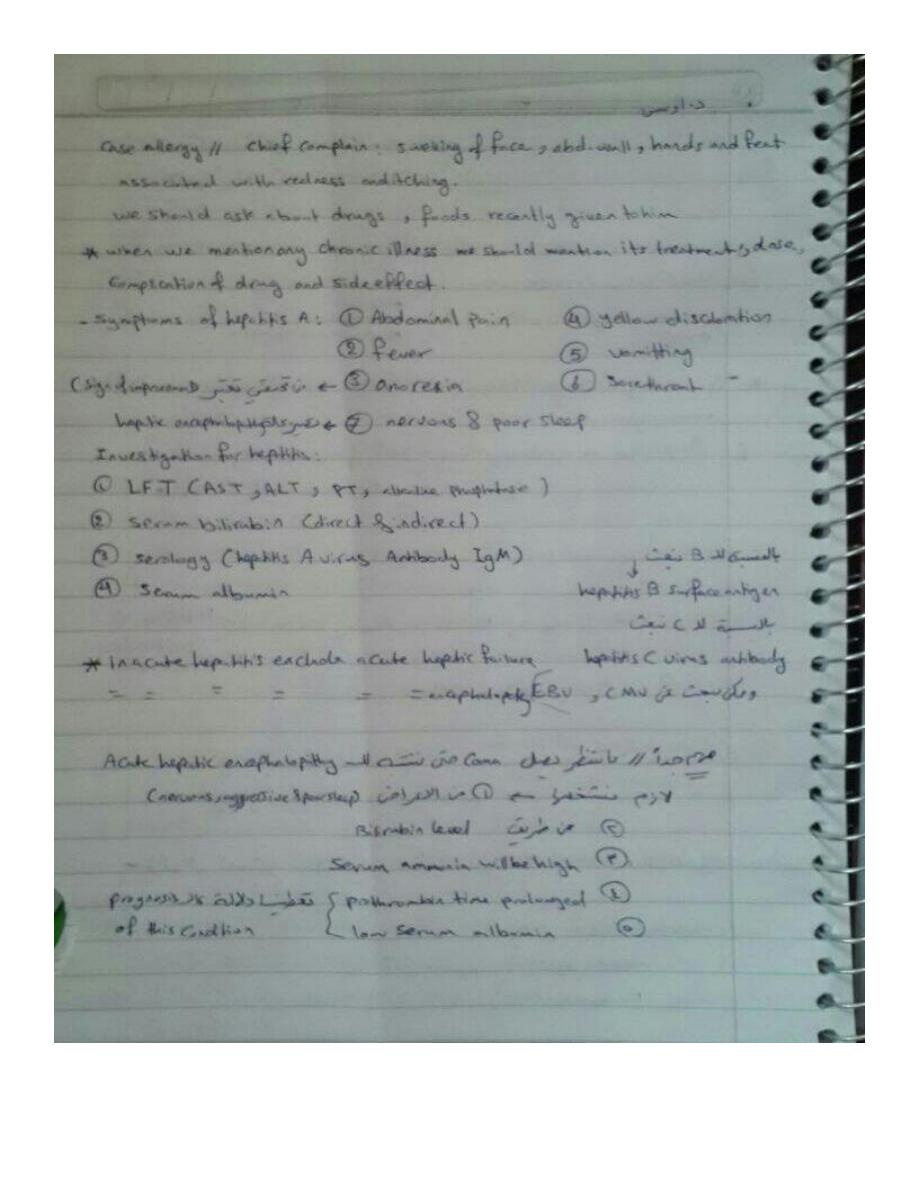 د. اوس
Case allergy // Chief Complain: swelling of face, abd. wall, hands and feat
associated with redness and itching.
we should ask about drugs, foods recently given to him
* when we mention any chronic illness we should mention its treatment, dose,
Complication of drug and side effect.
- Symptoms of heptitis A: ① Abdominal Pain ④ yellow discloration
② fever ⑤ vomitting
(sign of improvement) ← ③ anorexia ⑥ Sorethroat
heptic encephalopathy ← ⑦ nervous & poor sleep
Investigation for heptitis:
① LFT (AST, ALT, PT, alkaline phosphatase)
② Serum bilirubin (direct & indirect)
③ Serology (heptitis A virus Antibody IgM) بالنسبة لل B نبحث
④ Serum albumin heptitis B surface antigen
بالنسبة لل C نبحث
* In acute heptitis exclude acute heptic failure heptitis C virus antibody
= = = = = = encephalopathy EBV, CMV ويمكن نبحث عن
Acute hepatic encephalopathy مهم جداً // ما ننتظر يصل Coma حتى نشخص الـ
(nervous, aggressive & poor sleep) لازم نشخصها ① من الاعراض
Bilirubin level عن طريق ②
Serum ammonia will be high ③
prognosis تعطينا دلالة { prothrombin time prolonged ④
of this Condition low serum albumin ⑤